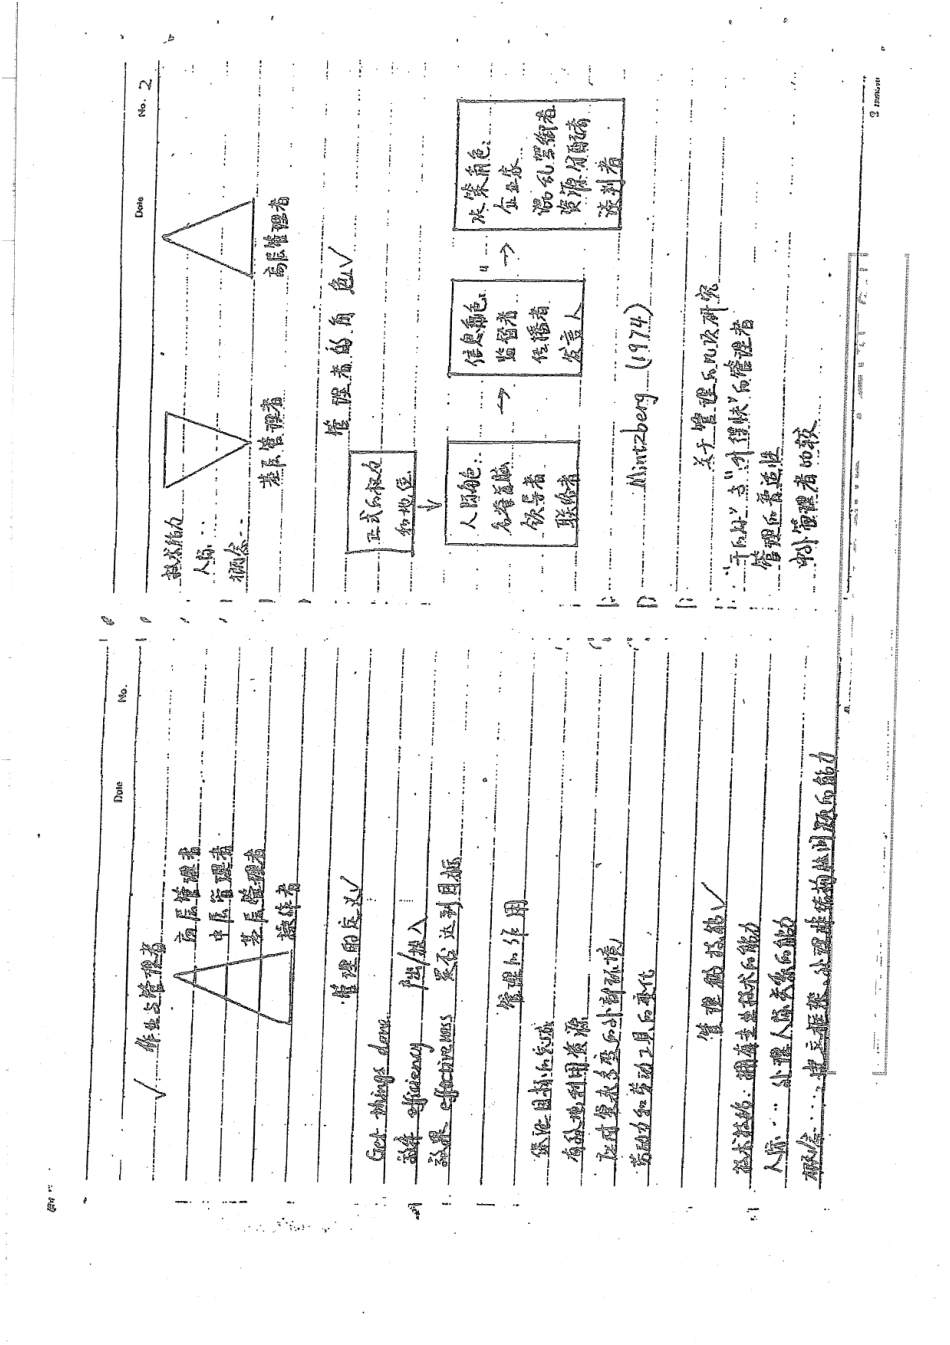 Date No.
作业与管理者
高层管理者
中层管理者
基层管理者
操作者
管理的定义
Get things done
效率 efficiency 产出/投入
效果 effectiveness 是否达到目标
管理的作用
保证目标的完成
有效地利用资源
应对复杂多变的外部环境
劳动力和劳动工具的变化
管理的技能
技术技能:拥有专业技术的能力
人际‥‥处理人际关系的能力
概念‥‥建立框架、处理非结构化问题的能力
Date No. 2
技术能力
人际‥
概念‥
基层管理者 高层管理者
管理者的角色
正式的权力
和地位
人际角色:
名誉首脑
领导者
联络者
→
信息角色:
监督者
传播者
发言人
→
决策角色:
企业家
混乱驾御者
资源分配者
谈判者
Mintzberg (1974)
关于管理的几次研究
"干的好"与"升得快"的管理者
管理的普适性
中外管理者的比较